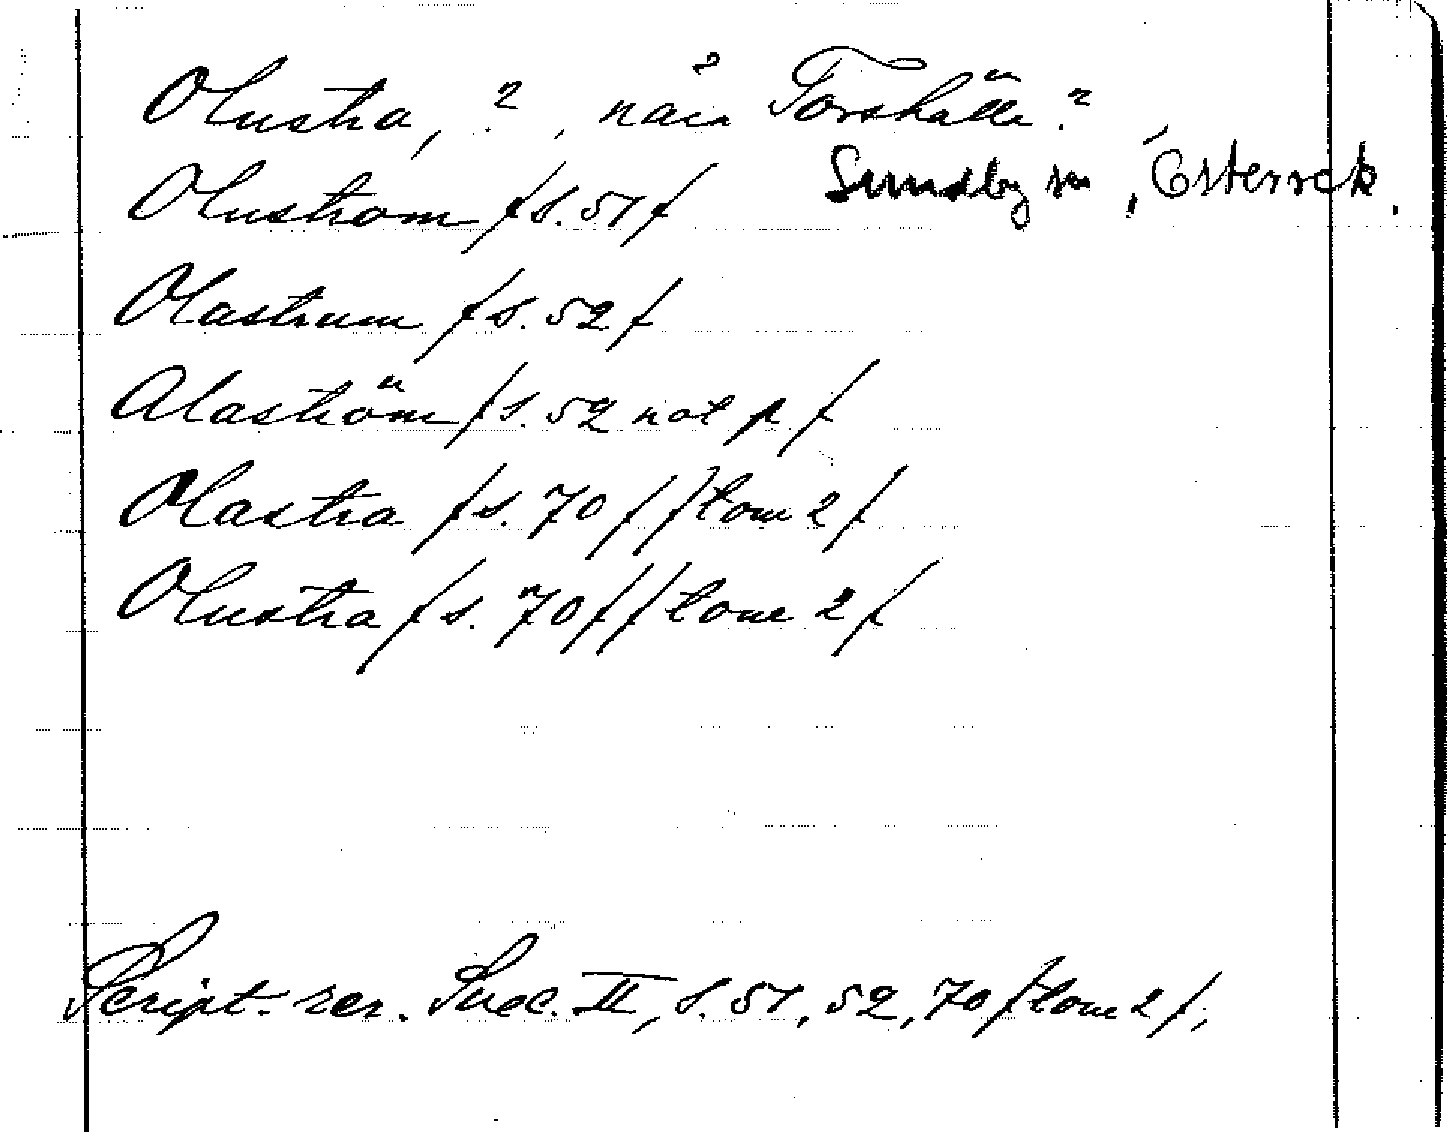 Olustra, ?, nära Torshälla?
Sundby sn, Österrek.
Olustrom /s. 51/
Olastrum /s. 52/
Alaström /s. 52 not p/
Olastra /s. 70/ /tom 2/
Olustra /s. 70/ /tom 2/
Script. rer. Suec. II, s. 51, 52, 70 /tom 2/,